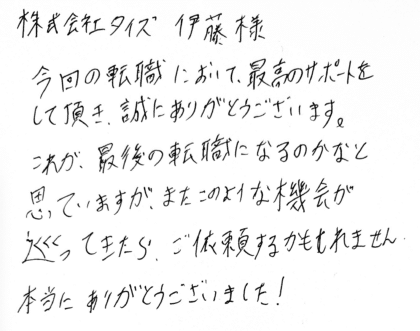 株式会社タイズ 伊藤様
今回の転職において、最高のサポートを
して頂き、誠にありがとうございます。
これが、最後の転職になるのかなと
思っていますが、またこのような機会が
巡ってきたら、ご依頼するかもしれません
本当にありがとうございました！